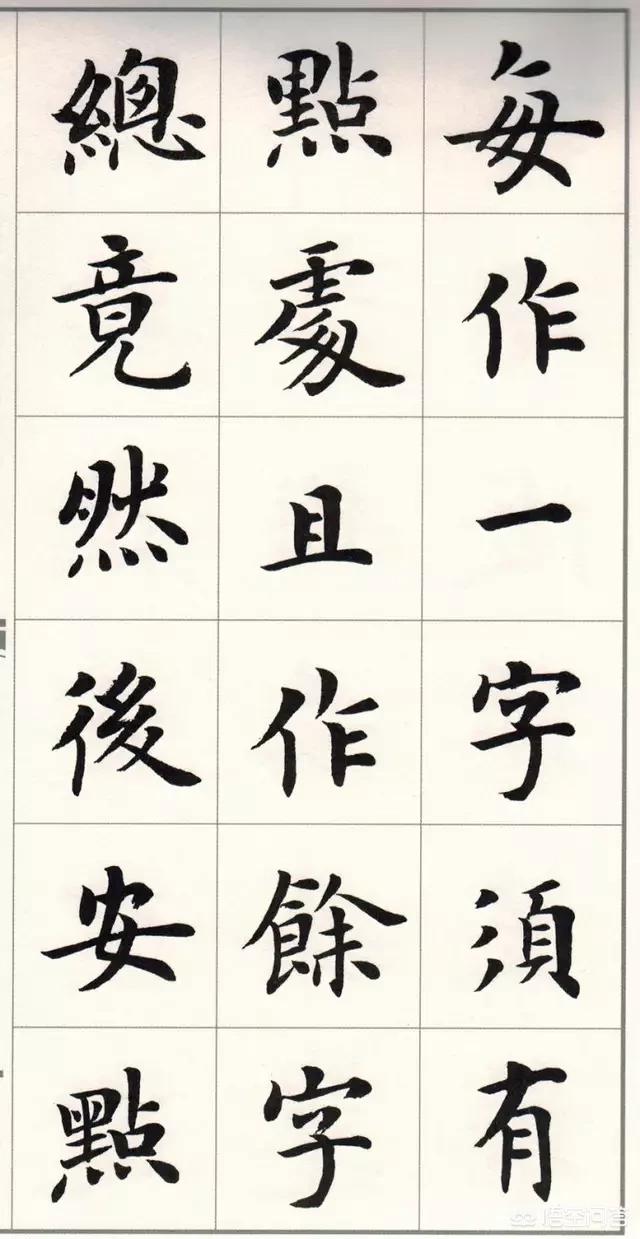 每作一字須有
點處且作餘字
總竟然後安點
悟空问答